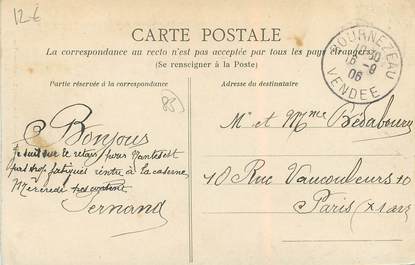 12€
CARTE POSTALE
La correspondance au recto n'est pas acceptée par tous les pays étrangers
(Se renseigner à la Poste)
Partie réservée à la correspondance
Adresse du destinataire
BOURNEZEAU
16-9
06
VENDEE
85
Bonjour
Je suis sur le retour pour Nantes et
pas trop fatigué rentre à la caserne
Mercredi
Fernand
Mr et Mme Bédabourg
10 Rue Vaucouleurs 10
Paris